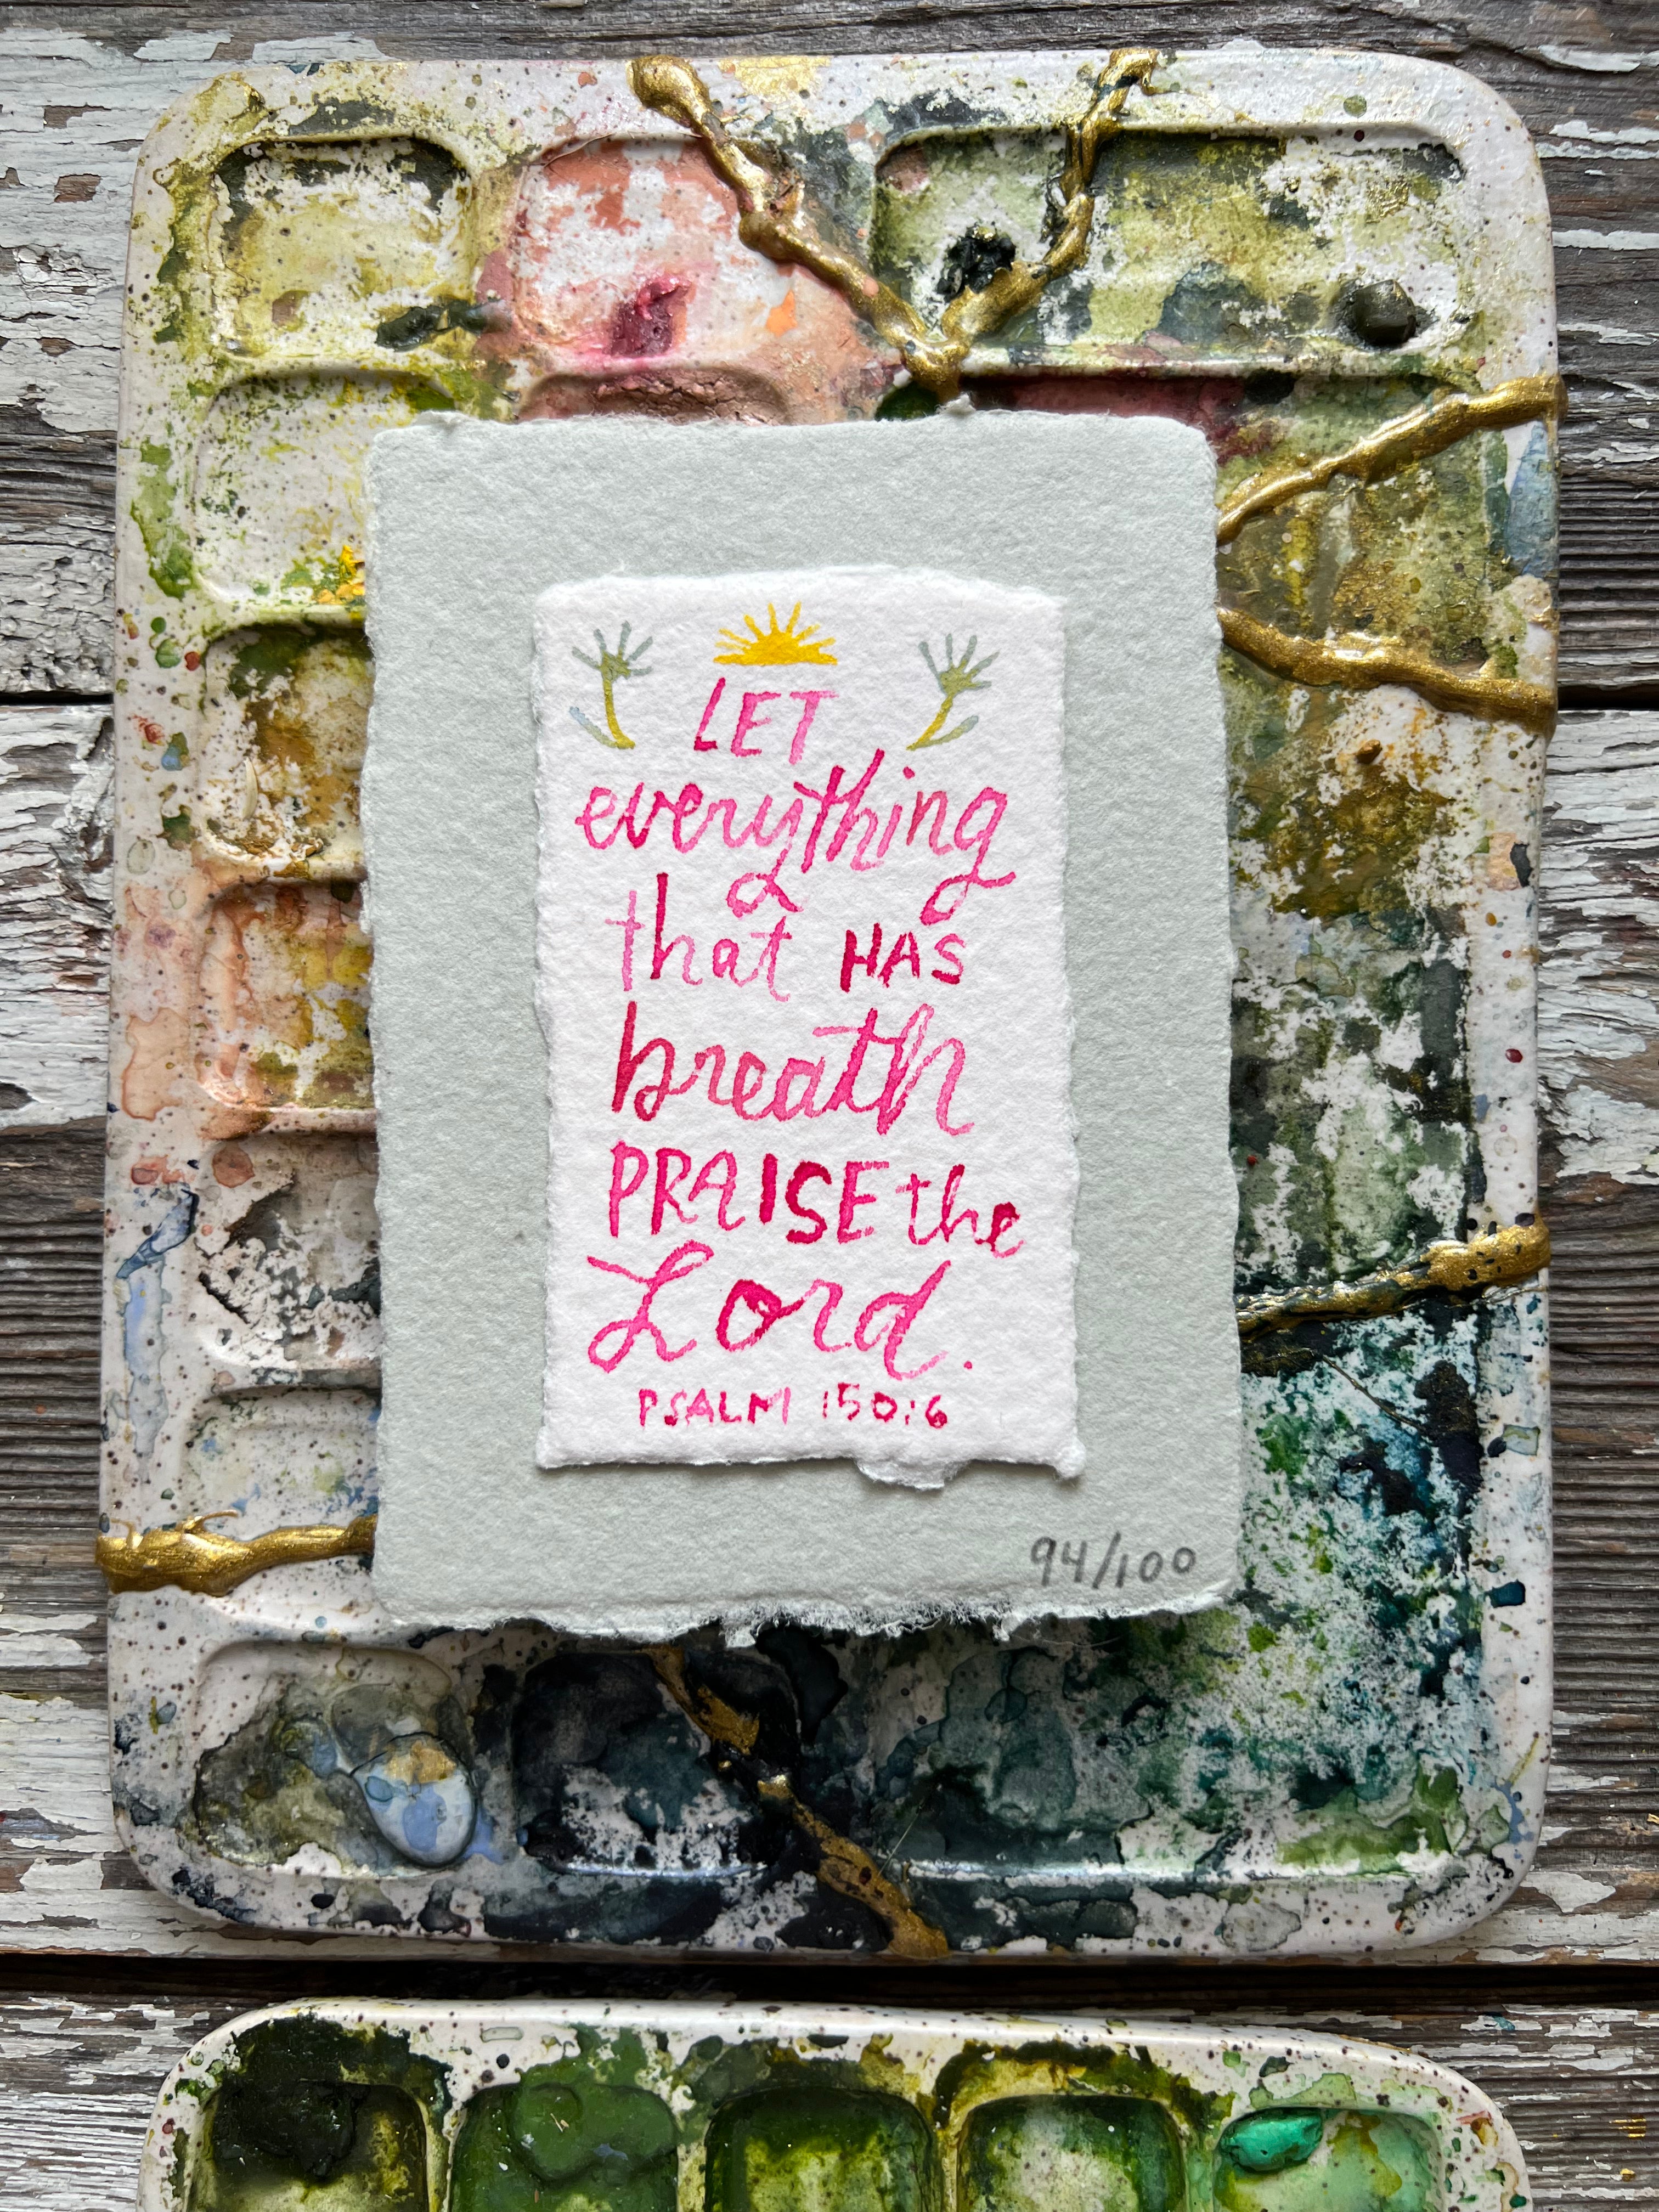 LET
everything
that HAS
breath
PRAISE the
Lord.
PSALM 150:6
94/100